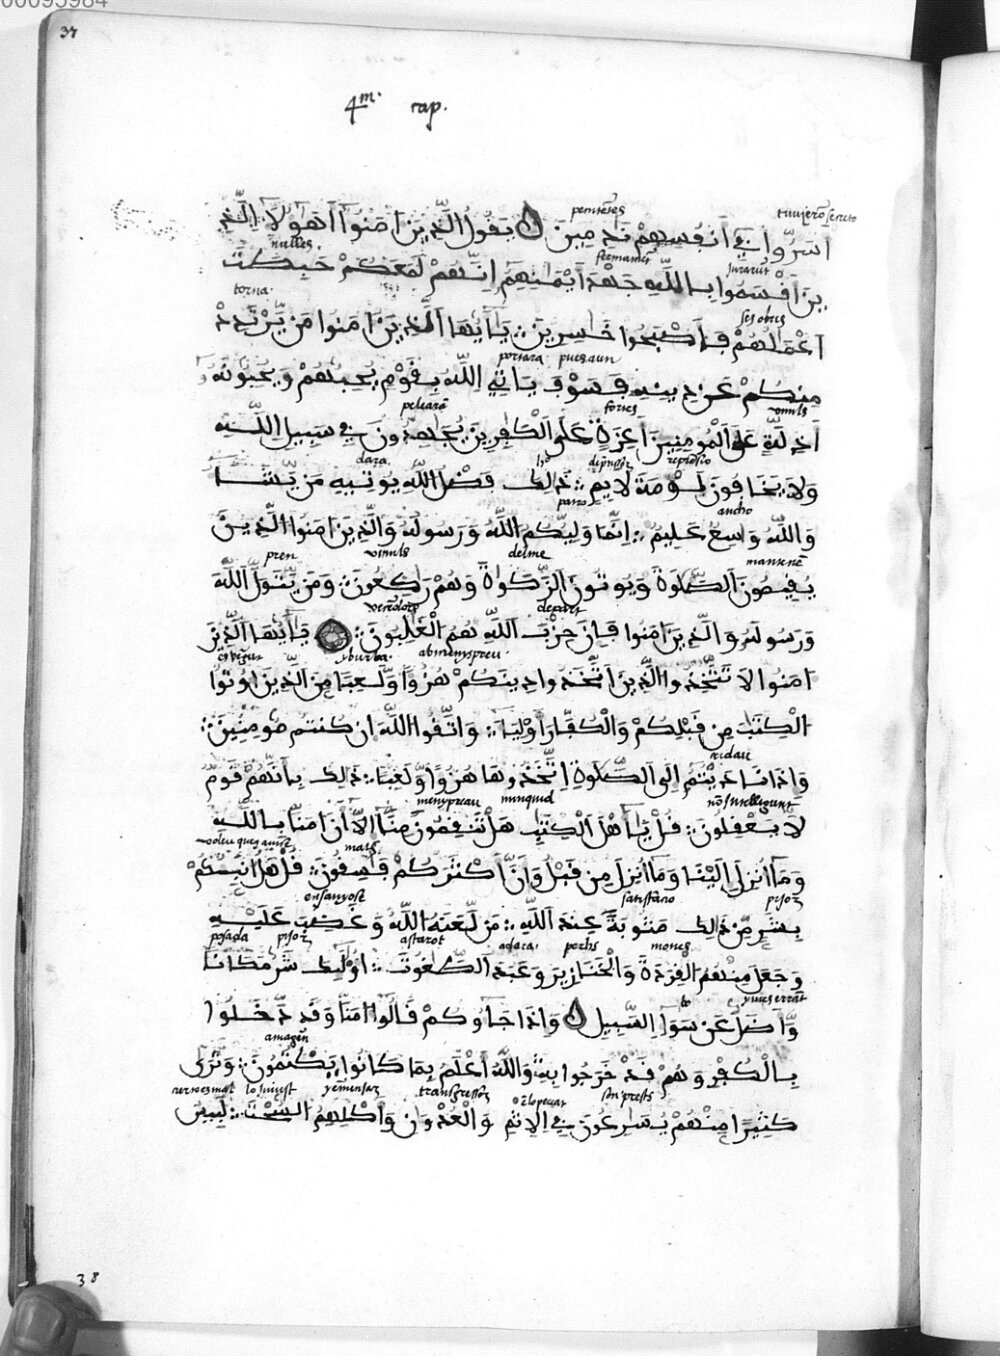 00093984
37
4m. cap.
penitetes tuvierō secreto
أَسَرُّوا فِي أَنفُسِهِمْ نَدِمِينَ يَقُولُ الَّذِينَ امَنُوا أَهَؤُلَا الَّذِ
nulles fermament jurarut
ينَ أَقْسَمُوا بِاللَّهِ جَهْدَ أَيْمَنِهِم إِنَّهُمْ لَمَعَكُمْ حَبِطَتَ
torna ses obres
أَعْمَلُهُمْ فَأَصْبَحُوا خَسِرِينَ يَأَيُّهَا الَّذِينَ امَنُوا مَن يَّرْتَدِدْ
portara pues aun
مِنكُمْ عَن دِينِهِ فَسَوْفَ يَاتِي اللَّهُ بِقَوْمٍ يُحِبُّهُمْ وَيُحِبُّونَهُ
peleara fortes
أَذِلَّةٍ عَلَى الْمُومِنِينَ أَعِزَّةٍ عَلَى الْكَفِرِينَ يُجَهِدُونَ فِي سَبِيلِ اللَّهِ
dara
وَلَا يَخَافُونَ لَوْمَةَ لَايِمٍ ذَلِكَ فَضْلُ اللَّهِ يُوتِيهِ مَن يَّشَا
ancho
وَاللَّهُ وَاسِعٌ عَلِيمٌ إِنَّمَا وَلِيُّكُمُ اللَّهُ وَرَسُولُهُ وَالَّذِينَ امَنُوا الَّذِينَ
pren delme
يُقِيمُونَ الصَّلَوةَ وَيُوتُونَ الزَّكَوةَ وَهُمْ رَاكِعُونَ وَمَن يَّتَوَلَّ اللَّهَ
depart
وَرَسُولَهُ وَالَّذِينَ امَنُوا فَإِنَّ حِزْبَ اللَّهِ هُمُ الْغَلِبُونَ يَأَيُّهَا الَّذِينَ
y burba
امَنُوا لَا تَتَّخِذُوا الَّذِينَ اتَّخَذُوا دِينَكُمْ هُزُؤًا وَّلَعِبًا مِنَ الَّذِينَ أُوتُوا
الْكِتَبَ مِن قَبْلِكُمْ وَالْكُفَّارَ أَوْلِيَا وَاتَّقُوا اللَّهَ ان كُنتُم مُّومِنِينَ
cridau
وَإِذَا نَادَيْتُمُ إِلَى الصَّلَوةِ اتَّخَذُوهَا هُزُؤًا وَّلَعِبًا ذَلِكَ بِأَنَّهُمْ قَوْمٌ
menypreau nunquid nō intelligunt
لَّا يَعْقِلُونَ قُلْ يَأَهْلَ الْكِتَبِ هَلْ تَنقِمُونَ مِنَّا إِلَّا أَنَ امَنَّا بِاللَّهِ
mals
وَمَا أُنزِلَ إِلَيْنَا وَمَا أُنزِلَ مِن قَبْلُ وَأَنَّ أَكْثَرَكُمْ فَسِقُونَ قُلْ هَلْ أُنَبِّئُكُمْ
ensanyose satisfatio pijor
بِشَرٍّ مِّن ذَلِكَ مَثُوبَةً عِندَ اللَّهِ مَن لَّعَنَهُ اللَّهُ وَغَضِبَ عَلَيْهِ
posada pijor astarot adora porchs mones
وَجَعَلَ مِنْهُمُ الْقِرَدَةَ وَالْخَنَازِيرَ وَعَبَدَ الطَّغُوتَ أُوْلَيِكَ شَرٌّ مَّكَانًا
وَّأَضَلُّ عَن سَوَا السَّبِيلِ وَإِذَا جَاؤُكُمْ قَالُوا امَنَّا وَقَد دَّخَلُوا
amagen
بِالْكُفْرِ وَهُمْ قَدْ خَرَجُوا بِهِ وَاللَّهُ أَعْلَمُ بِمَا كَانُوا يَكْتُمُونَ وَتَرَى
transgressor son prests
كَثِيرًا مِنْهُمْ يُسَرِعُونَ فِي الِاثْمِ وَالْعُدْوَنِ وَأَكْلِهِمُ السُّحْتَ لَبِيسَ
38